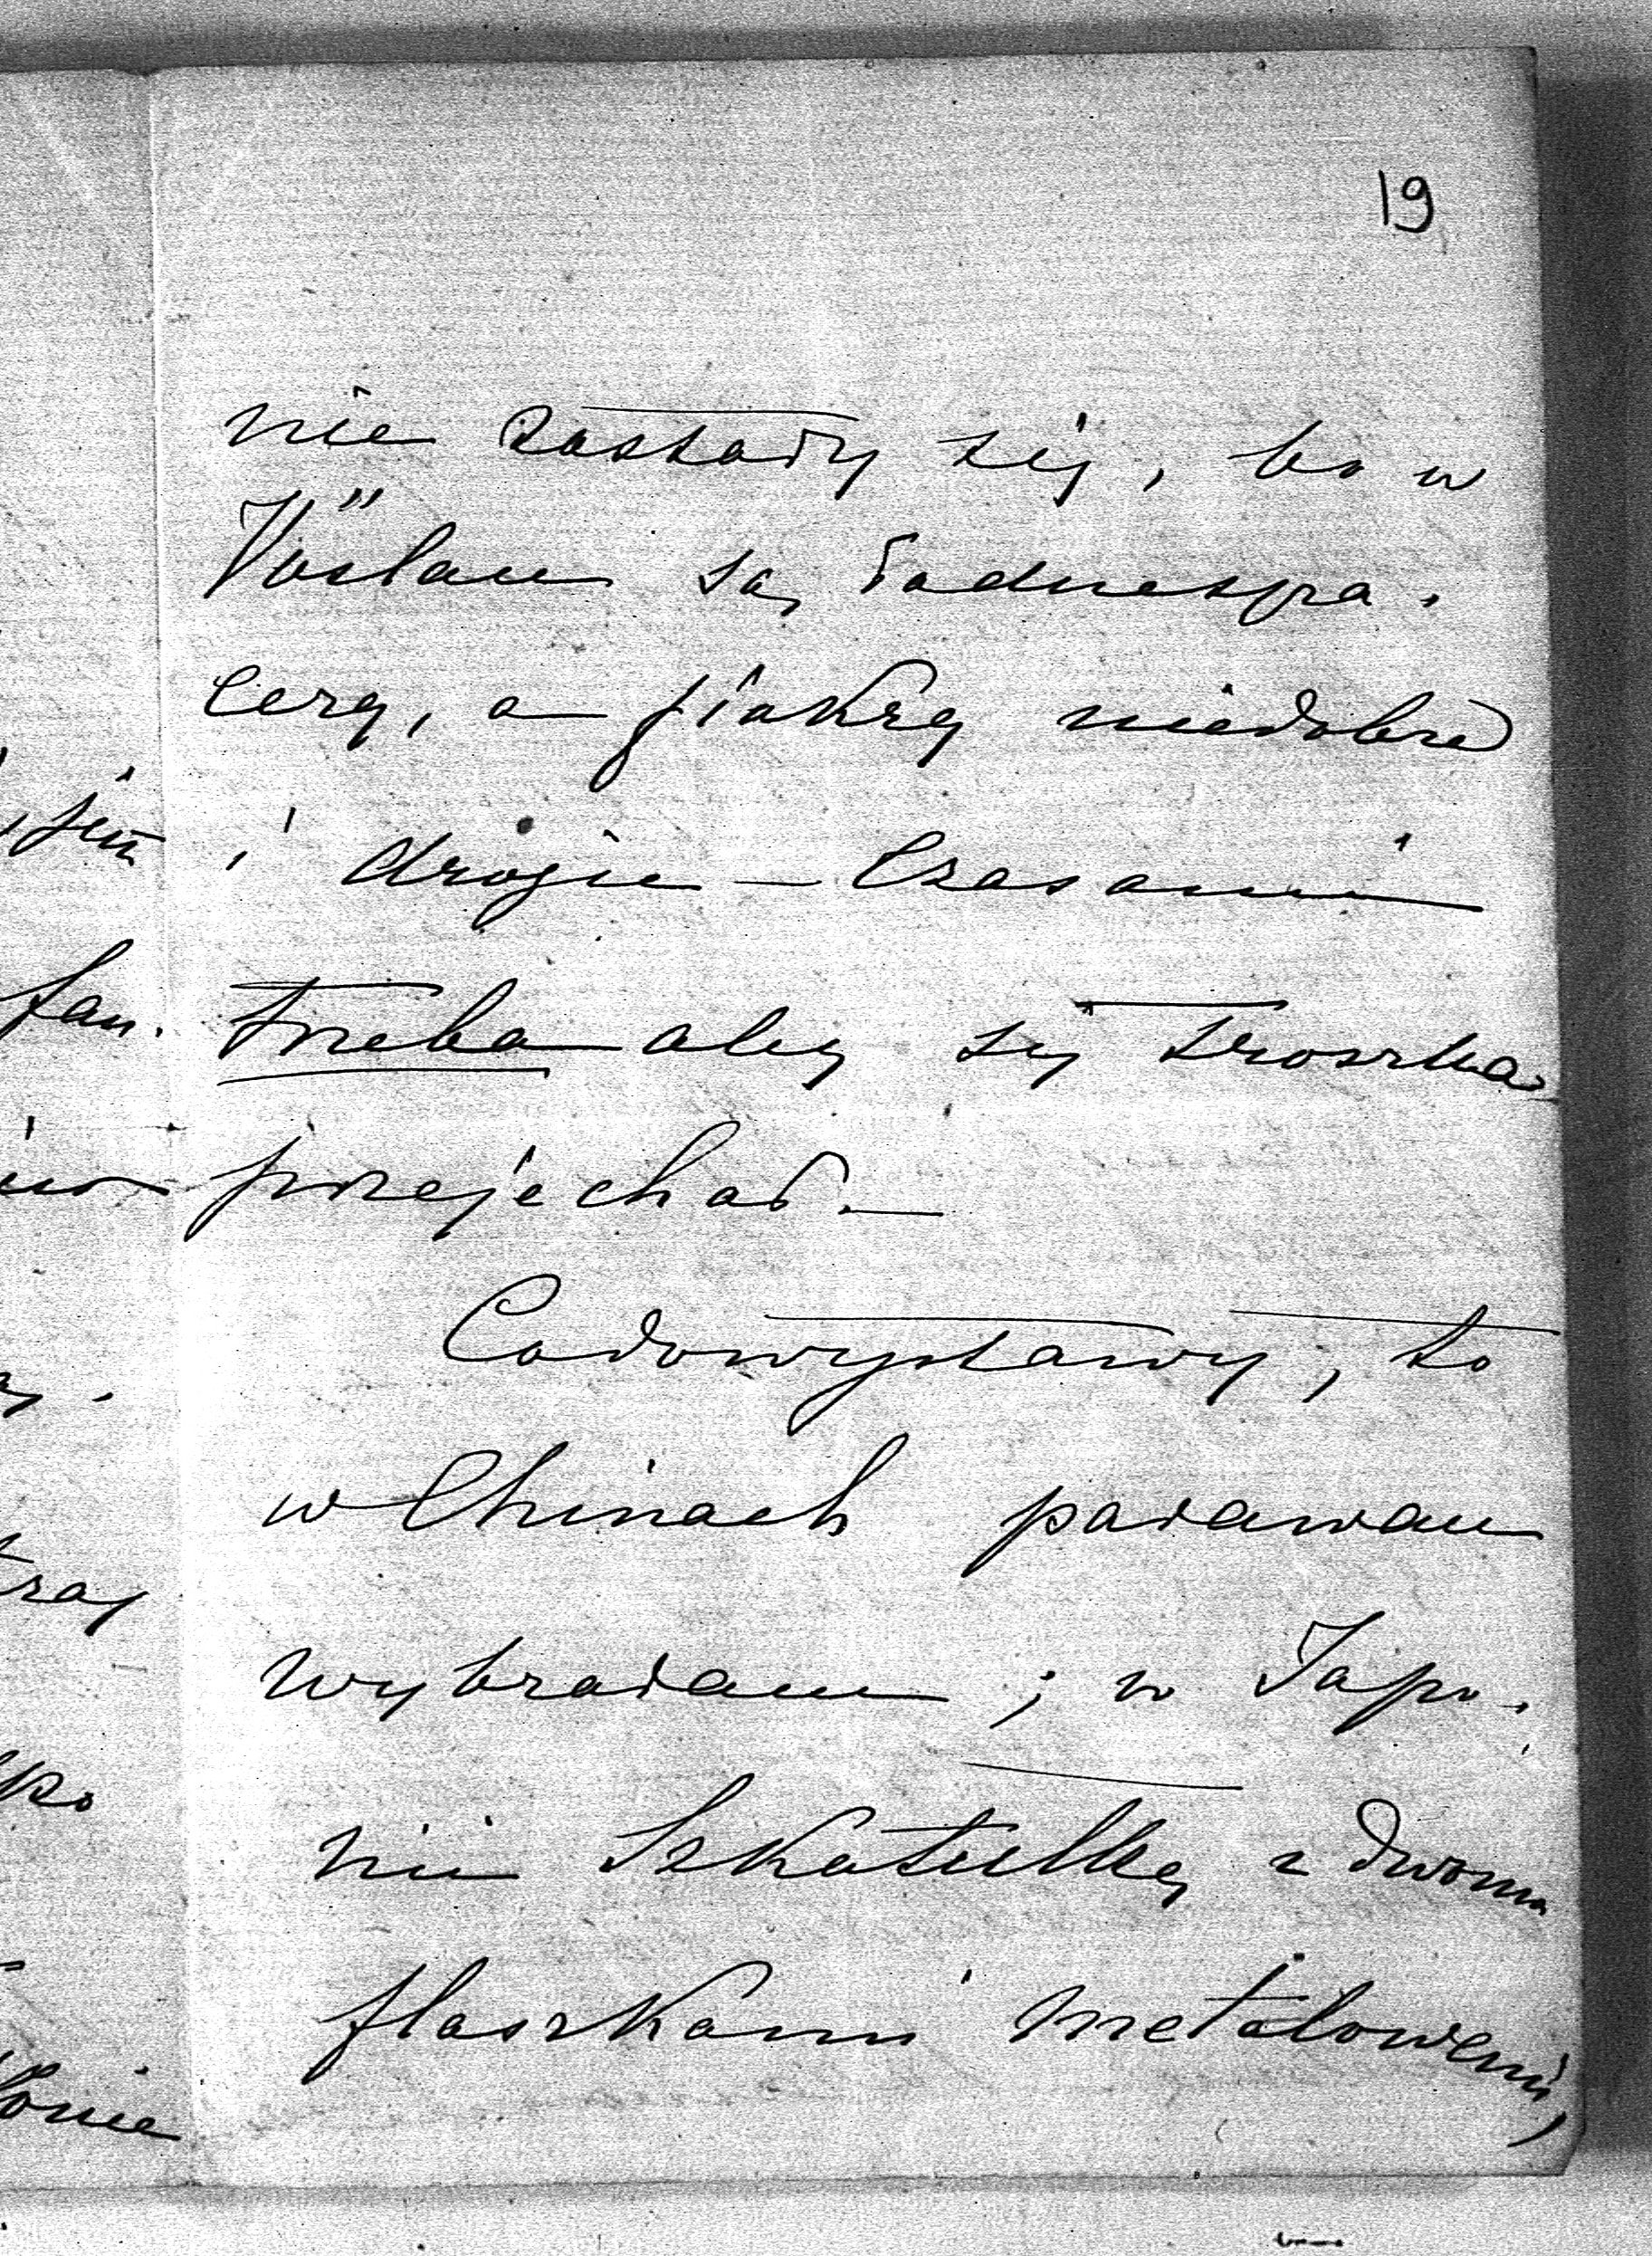 19
nie zastały się, bo w
Vöslau są ładne spa-
cery, a fiakry niedobre
i drogie — Czasami
trzeba aby się troszka
przejechać. —
Co do wystawy, to
w Chinach parawan
wybrałam; w Japo-
nii Szkatułkę z dwoma
flaszkami metalowemi,